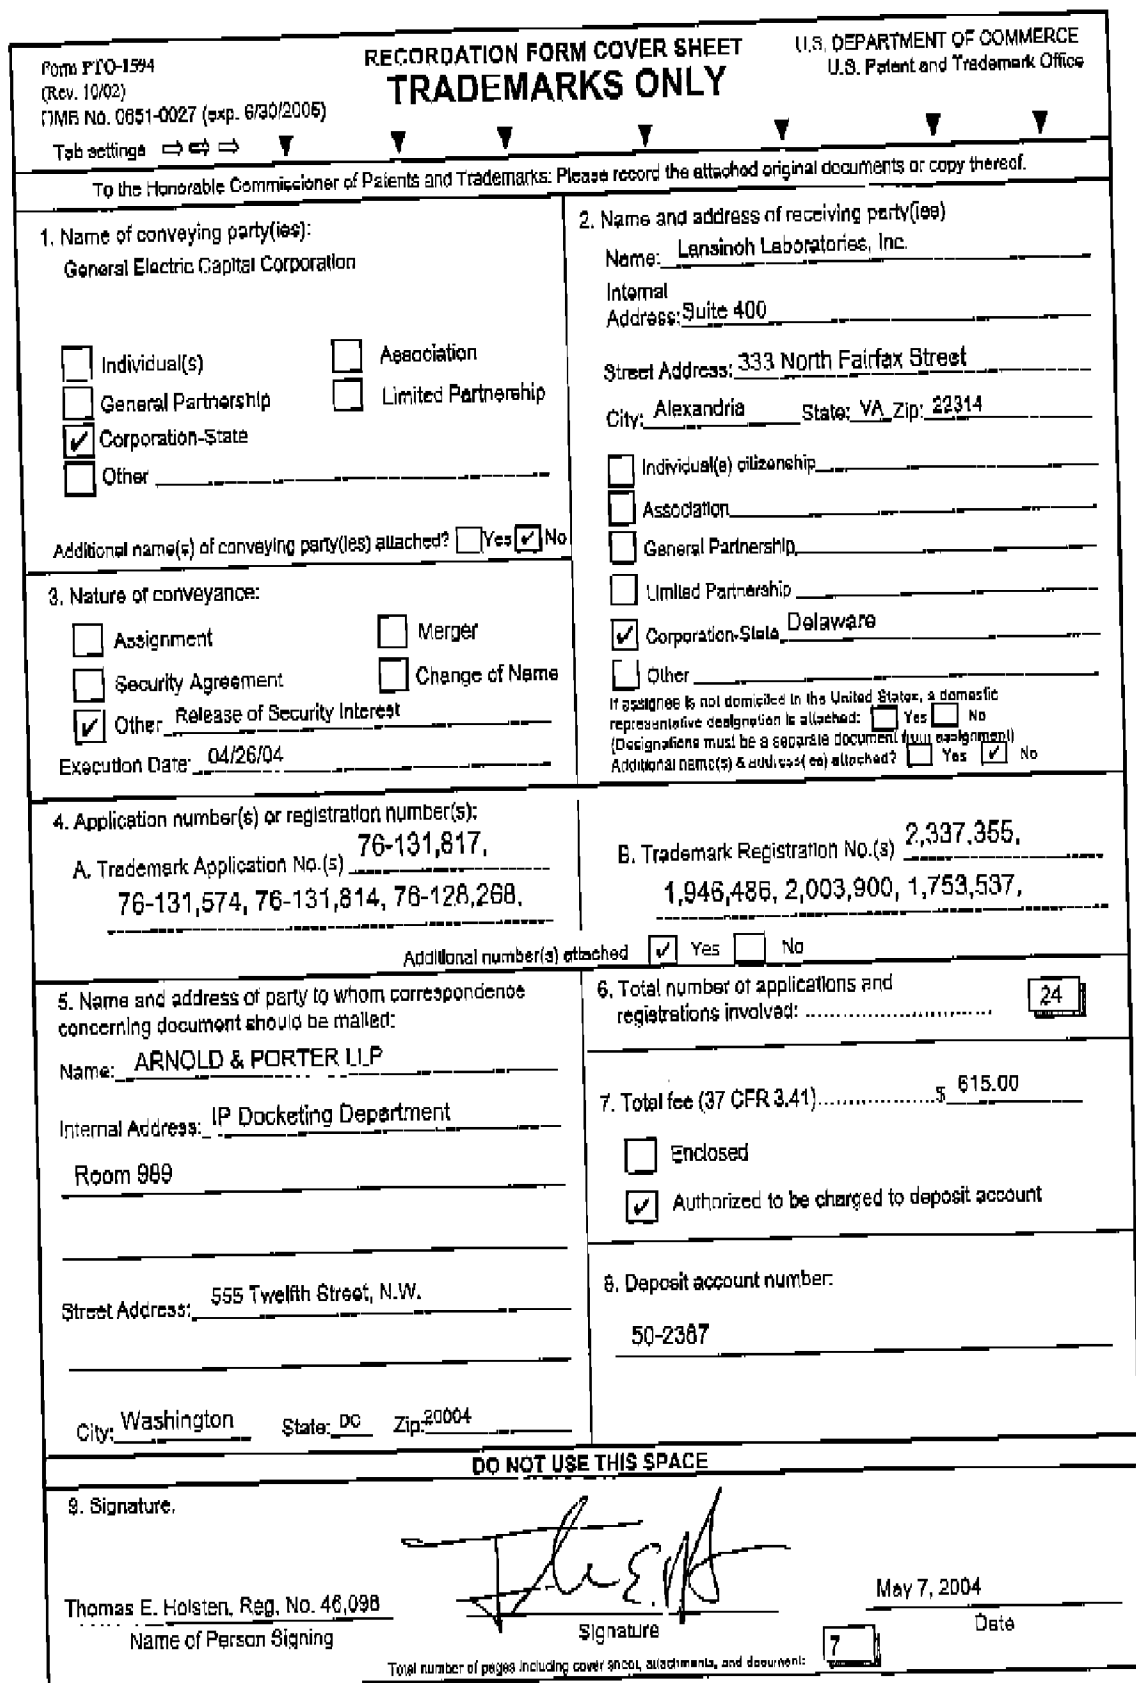 Form PTO-1594
(Rev. 10/02)
OMB No. 0651-0027 (exp. 6/30/2005)
Tab settings
RECORDATION FORM COVER SHEET
TRADEMARKS ONLY
U.S. DEPARTMENT OF COMMERCE
U.S. Patent and Trademark Office
To the Honorable Commissioner of Patents and Trademarks: Please record the attached original documents or copy thereof.
1. Name of conveying party(ies):
General Electric Capital Corporation
Individual(s)
Association
General Partnership
Limited Partnership
Corporation-State
Other
Additional name(s) of conveying party(ies) attached? Yes No
2. Name and address of receiving party(ies)
Name: Lansinoh Laboratories, Inc.
Internal
Address: Suite 400
Street Address: 333 North Fairfax Street
City: Alexandria State: VA Zip: 22314
Individual(s) citizenship
Association
General Partnership
Limited Partnership
Corporation-State Delaware
Other
If assignee is not domiciled in the United States, a domestic
representative designation is attached: Yes No
(Designations must be a separate document from assignment)
Additional name(s) & address(es) attached? Yes No
3. Nature of conveyance:
Assignment
Merger
Security Agreement
Change of Name
Other Release of Security Interest
Execution Date: 04/26/04
4. Application number(s) or registration number(s):
A. Trademark Application No.(s) 76-131,817,
76-131,574, 76-131,814, 76-128,268,
B. Trademark Registration No.(s) 2,337,355,
1,946,486, 2,003,900, 1,753,537,
Additional number(s) attached Yes No
5. Name and address of party to whom correspondence
concerning document should be mailed:
Name: ARNOLD & PORTER LLP
Internal Address: IP Docketing Department
Room 989
Street Address: 555 Twelfth Street, N.W.
City: Washington State: DC Zip: 20004
6. Total number of applications and
registrations involved: 24
7. Total fee (37 CFR 3.41) $ 615.00
Enclosed
Authorized to be charged to deposit account
8. Deposit account number:
50-2387
DO NOT USE THIS SPACE
9. Signature.
Thomas E. Holsten, Reg. No. 46,098
Name of Person Signing
Signature
May 7, 2004
Date
Total number of pages including cover sheet, attachments, and document: 7